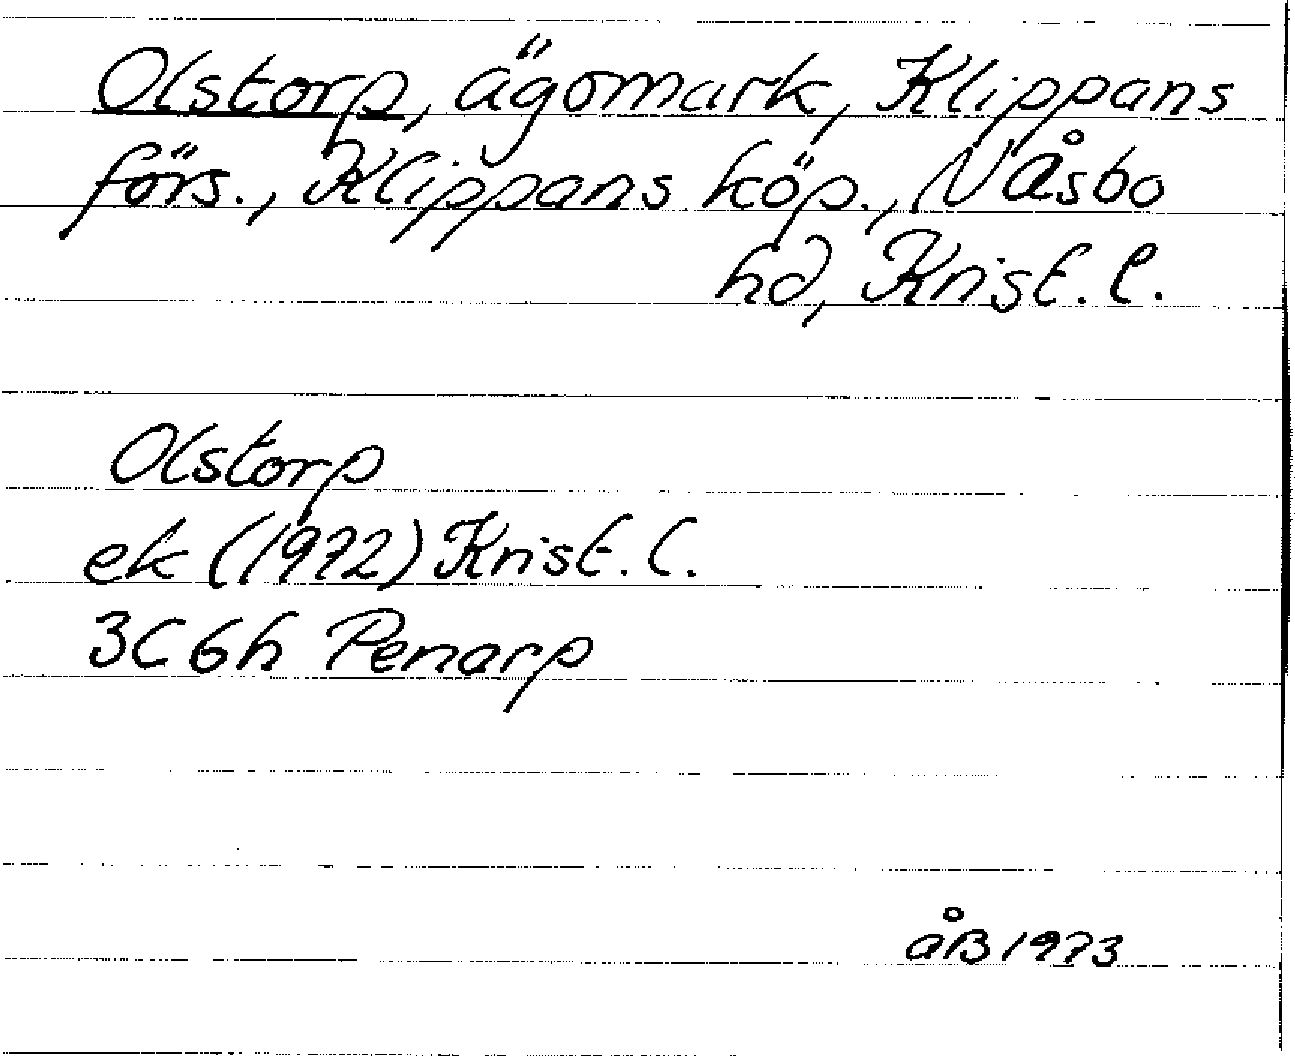 Olstorp, ägomark, Klippans
förs., Klippans köp., N Åsbo
hd, Krist. l.
Olstorp
ek (1972) Krist. l.
3C6h Penarp
åB 1973